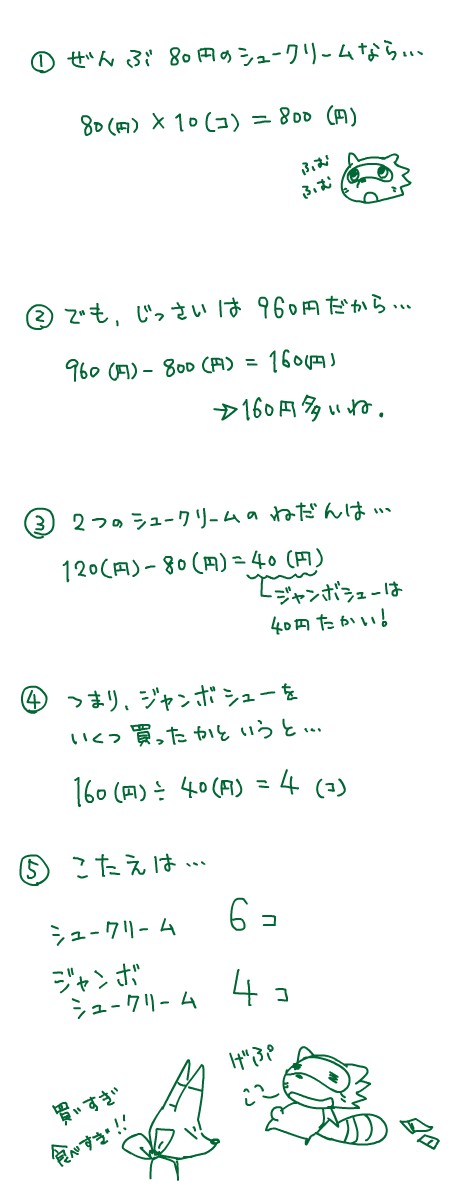 ① ぜんぶ 80円のシュークリームなら…
80(円) × 10(コ) = 800 (円)
ふむ
ふむ
② でも、じっさいは 960円だから…
960(円) - 800(円) = 160(円)
→160円多いね.
③ 2つのシュークリームの ねだんは…
120(円) - 80(円) = 40(円)
ジャンボシューは
40円たかい!
④ つまり、ジャンボシューを
いくつ買ったかというと…
160(円) ÷ 40(円) = 4 (コ)
⑤ こたえは…
シュークリーム 6コ
ジャンボ
シュークリーム 4コ
げぷ
買いすぎ
食べすぎ!!